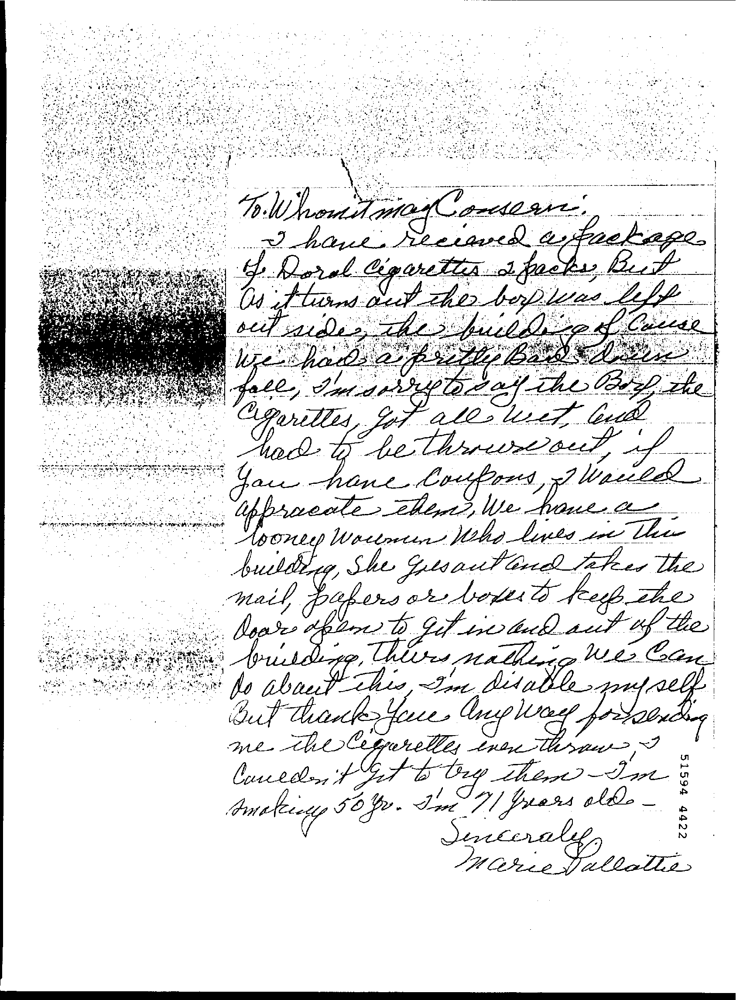 To. Whomit may Consern:
I have recieved a package
of Doral Cigarettes 2 packs, But
as it turns out the box was left
out side, the building of Cause
we had a prettly Bad down
fall, I'm sorry to say the Box, the
Cigarettes, got all wet, and
had to be thrown out, if
you have Coupons, I would
appracate them, We have a
looney woumun who lives in this
building, She goes out and takes the
mail, papers or boxes to keep the
door open to get in and out of the
building, theirs nothing we can
do about this, I'm disable my self
But thank you any way for sending
me the Cigarettes even throw, I
Couldn't get to try them - I'm
smoking 50 yr. I'm 71 years old -
Sinceraly,
Marie
51594 4422